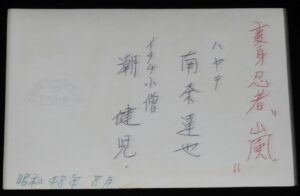 変身忍者〝嵐〟
ハヤテ
南条達也
イタチ小僧
潮健児.
昭和48年8月